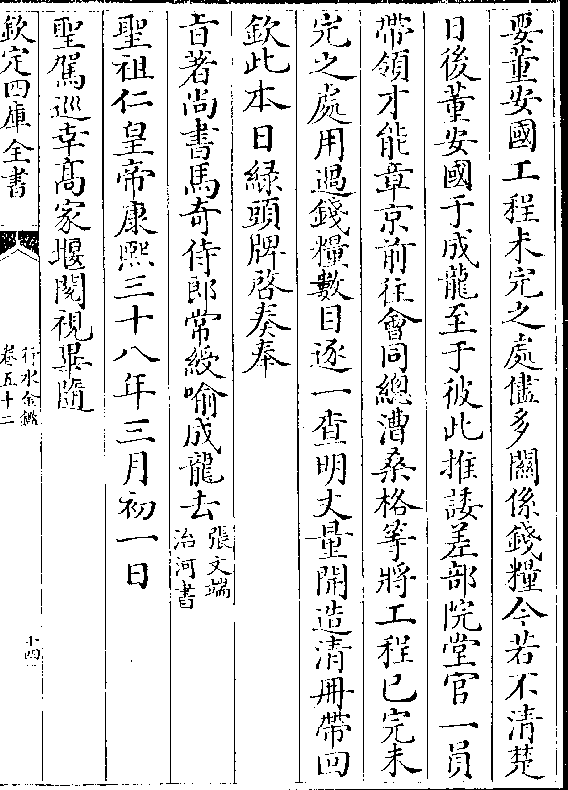 要董安國工程未完之處儘多關係錢糧今若不清楚
日後董安國于成龍至于彼此推諉差部院堂官一員
帶領才能章京前往會同總漕桑格等將工程已完未
完之處用過錢糧數目逐一查明丈量開造清冊帶回
欽此本日緑頭牌啓奏奉
㫖著尚書馬奇侍郎常綬喻成龍去張文端
治河書
聖祖仁皇帝康熙三十八年三月初一日
聖駕巡幸髙家堰閲視畢隨
欽定四庫全書
行水金鑑
卷五十二
十四